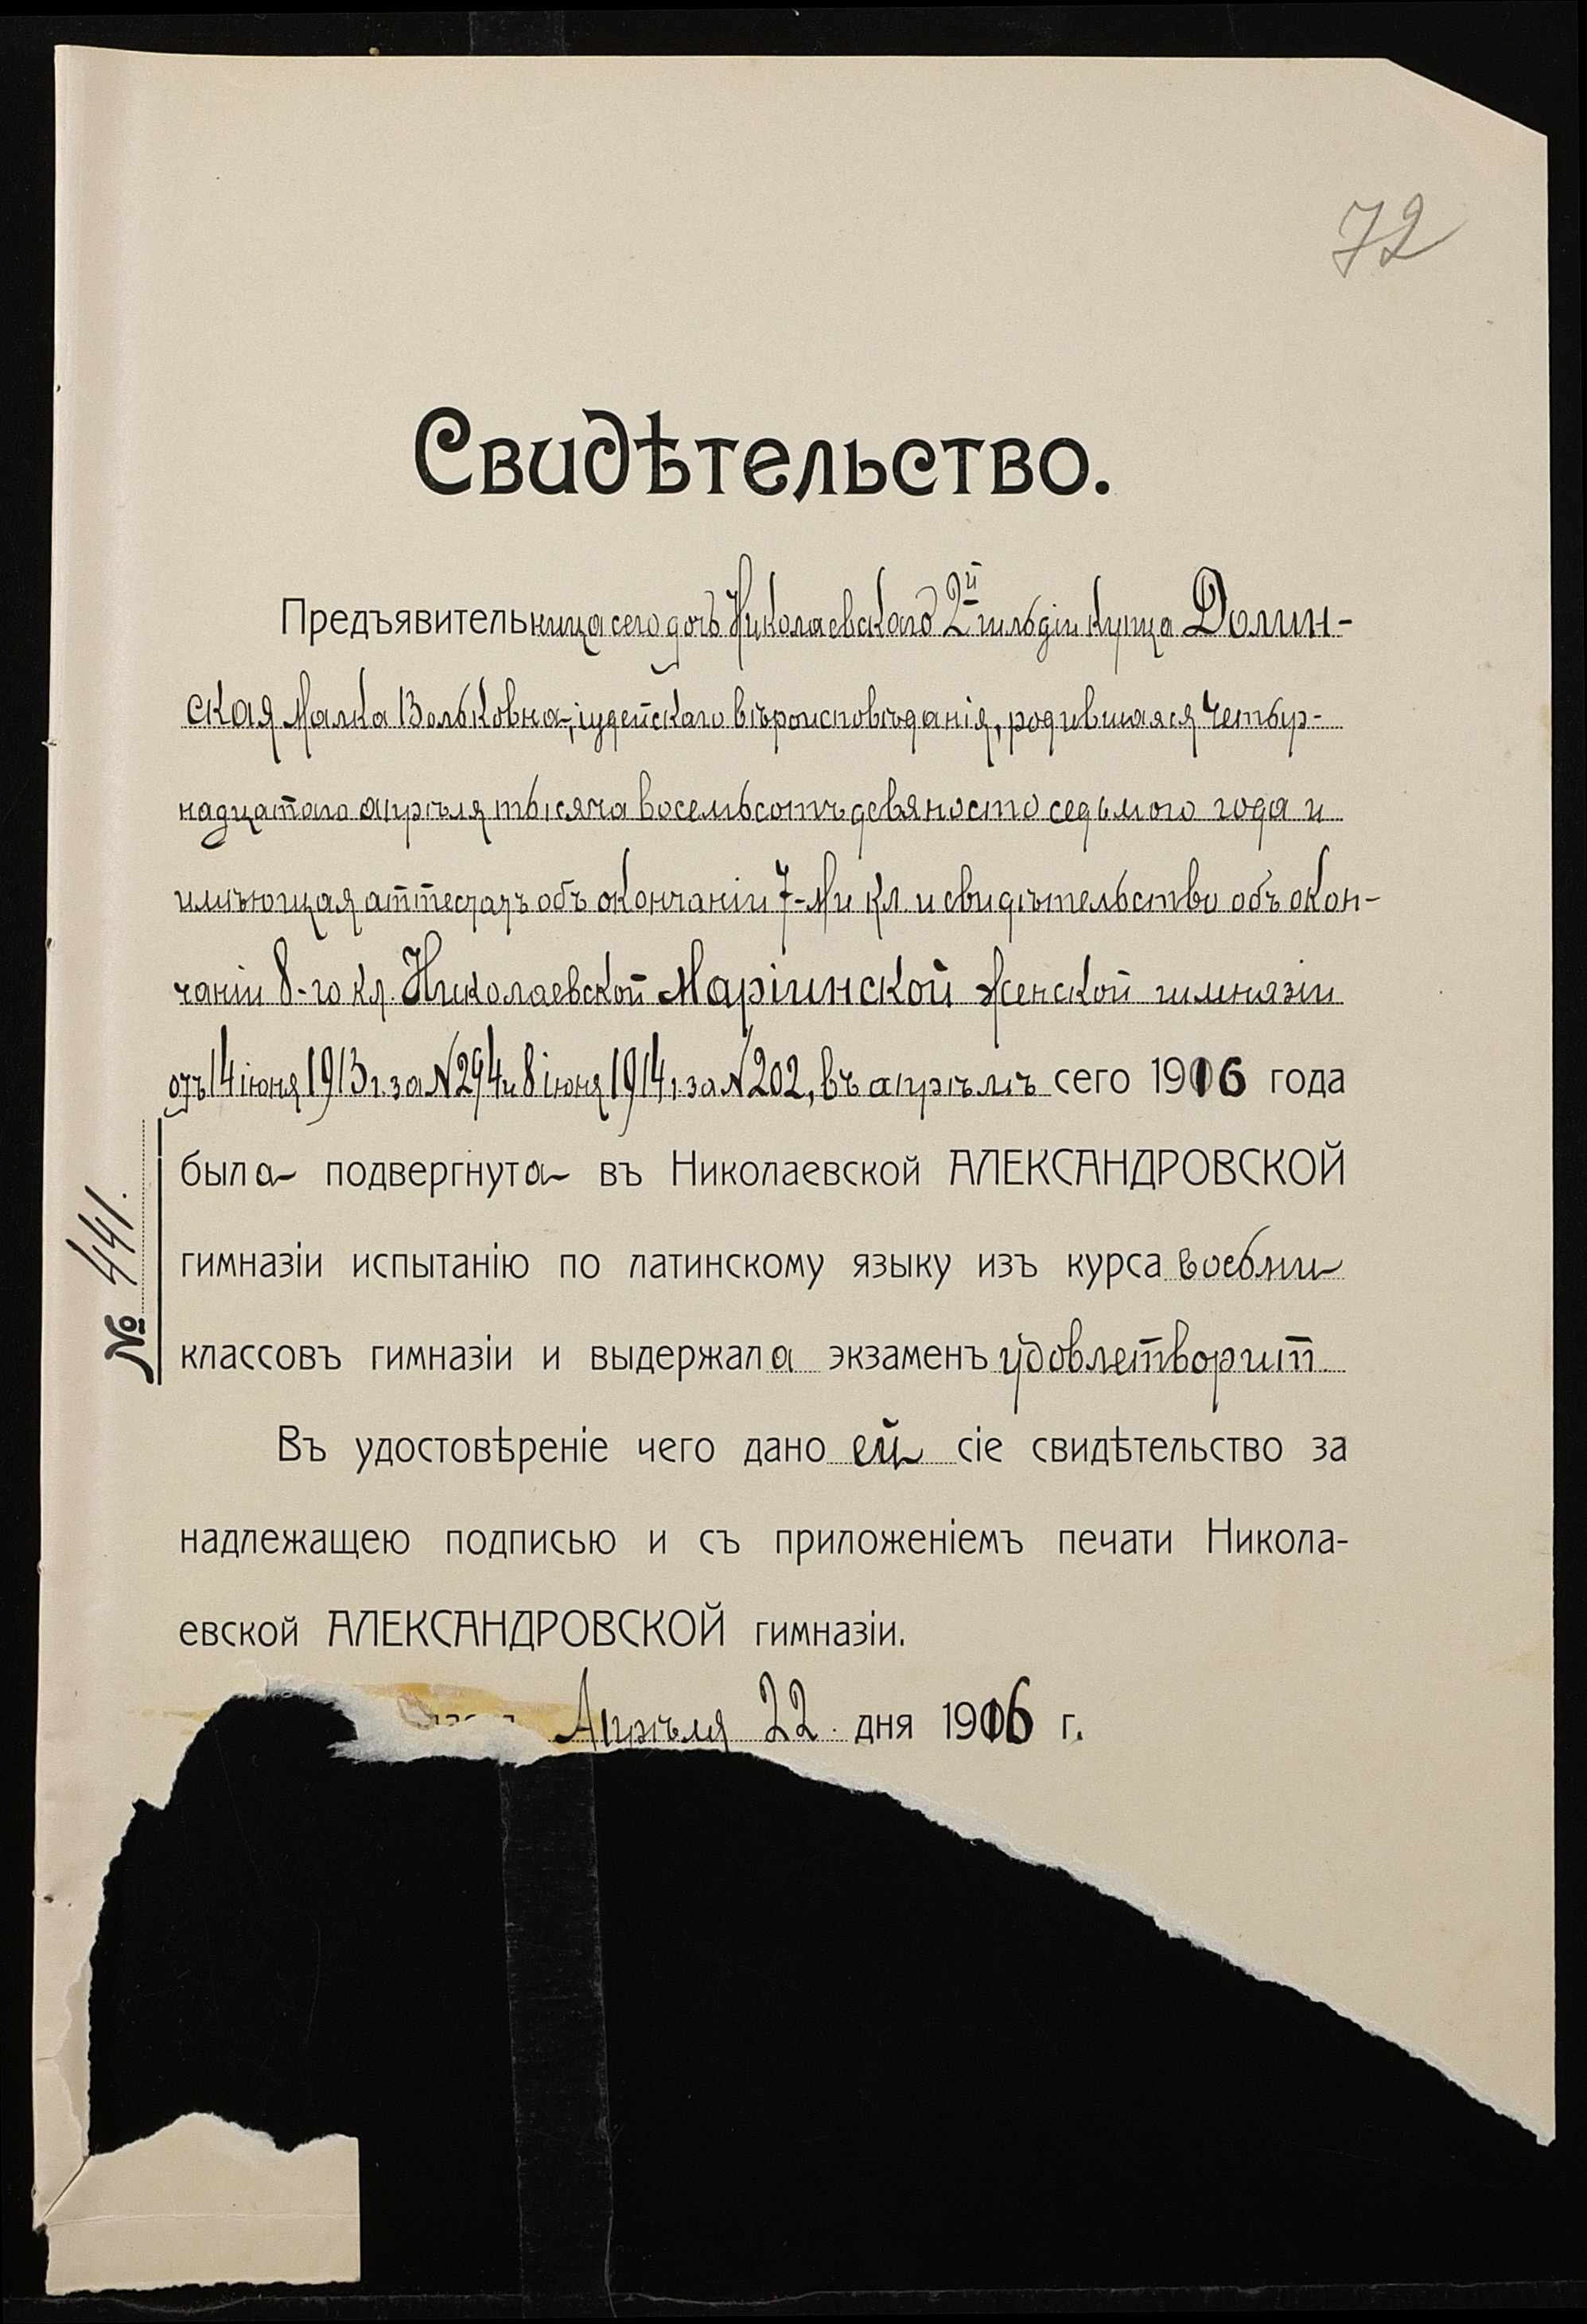 72
Свидѣтельство.
Предъявительница сего дочь Николаевскаго 2й гильдіи купца Долин-
ская Малка Вольковна, іудейскаго вѣроисповѣданія, родившаяся четыр-
надцатаго апрѣля тысяча восемьсотъ девяносто седьмого года и
имѣющая аттестатъ объ окончаніи 7-ми кл. и свидѣтельство объ окон-
чаніи 8-го кл. Николаевской Маріинской женской гимназіи
отъ 14 іюня 1913 г. за №294 и 8 іюня 1914 г. за №202, въ апрѣлѣ сего 1916 года
была подвергнута въ Николаевской АЛЕКСАНДРОВСКОЙ
гимназіи испытанію по латинскому языку изъ курса восьми
классовъ гимназіи и выдержала экзаменъ удовлетворит.
Въ удостовѣреніе чего дано ей сіе свидѣтельство за
надлежащею подписью и съ приложеніемъ печати Никола-
евской АЛЕКСАНДРОВСКОЙ гимназіи.
Апрѣля 22 дня 1916 г.
№ 441.